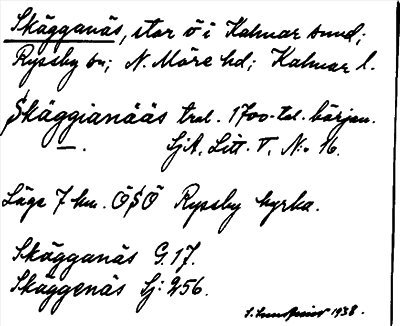 Skägganäs, stor ö i Kalmar sund;
Ryssby sn; N. Möre hd; Kalmar l.
Skäggianääs trol. 1700-tal. början.
— . SjA. Litt. T, No 16.
Läge 7 km. ÖSÖ Ryssby kyrka.
Skägganäs G. 17.
Skäggenäs Sj: 256.
1938.